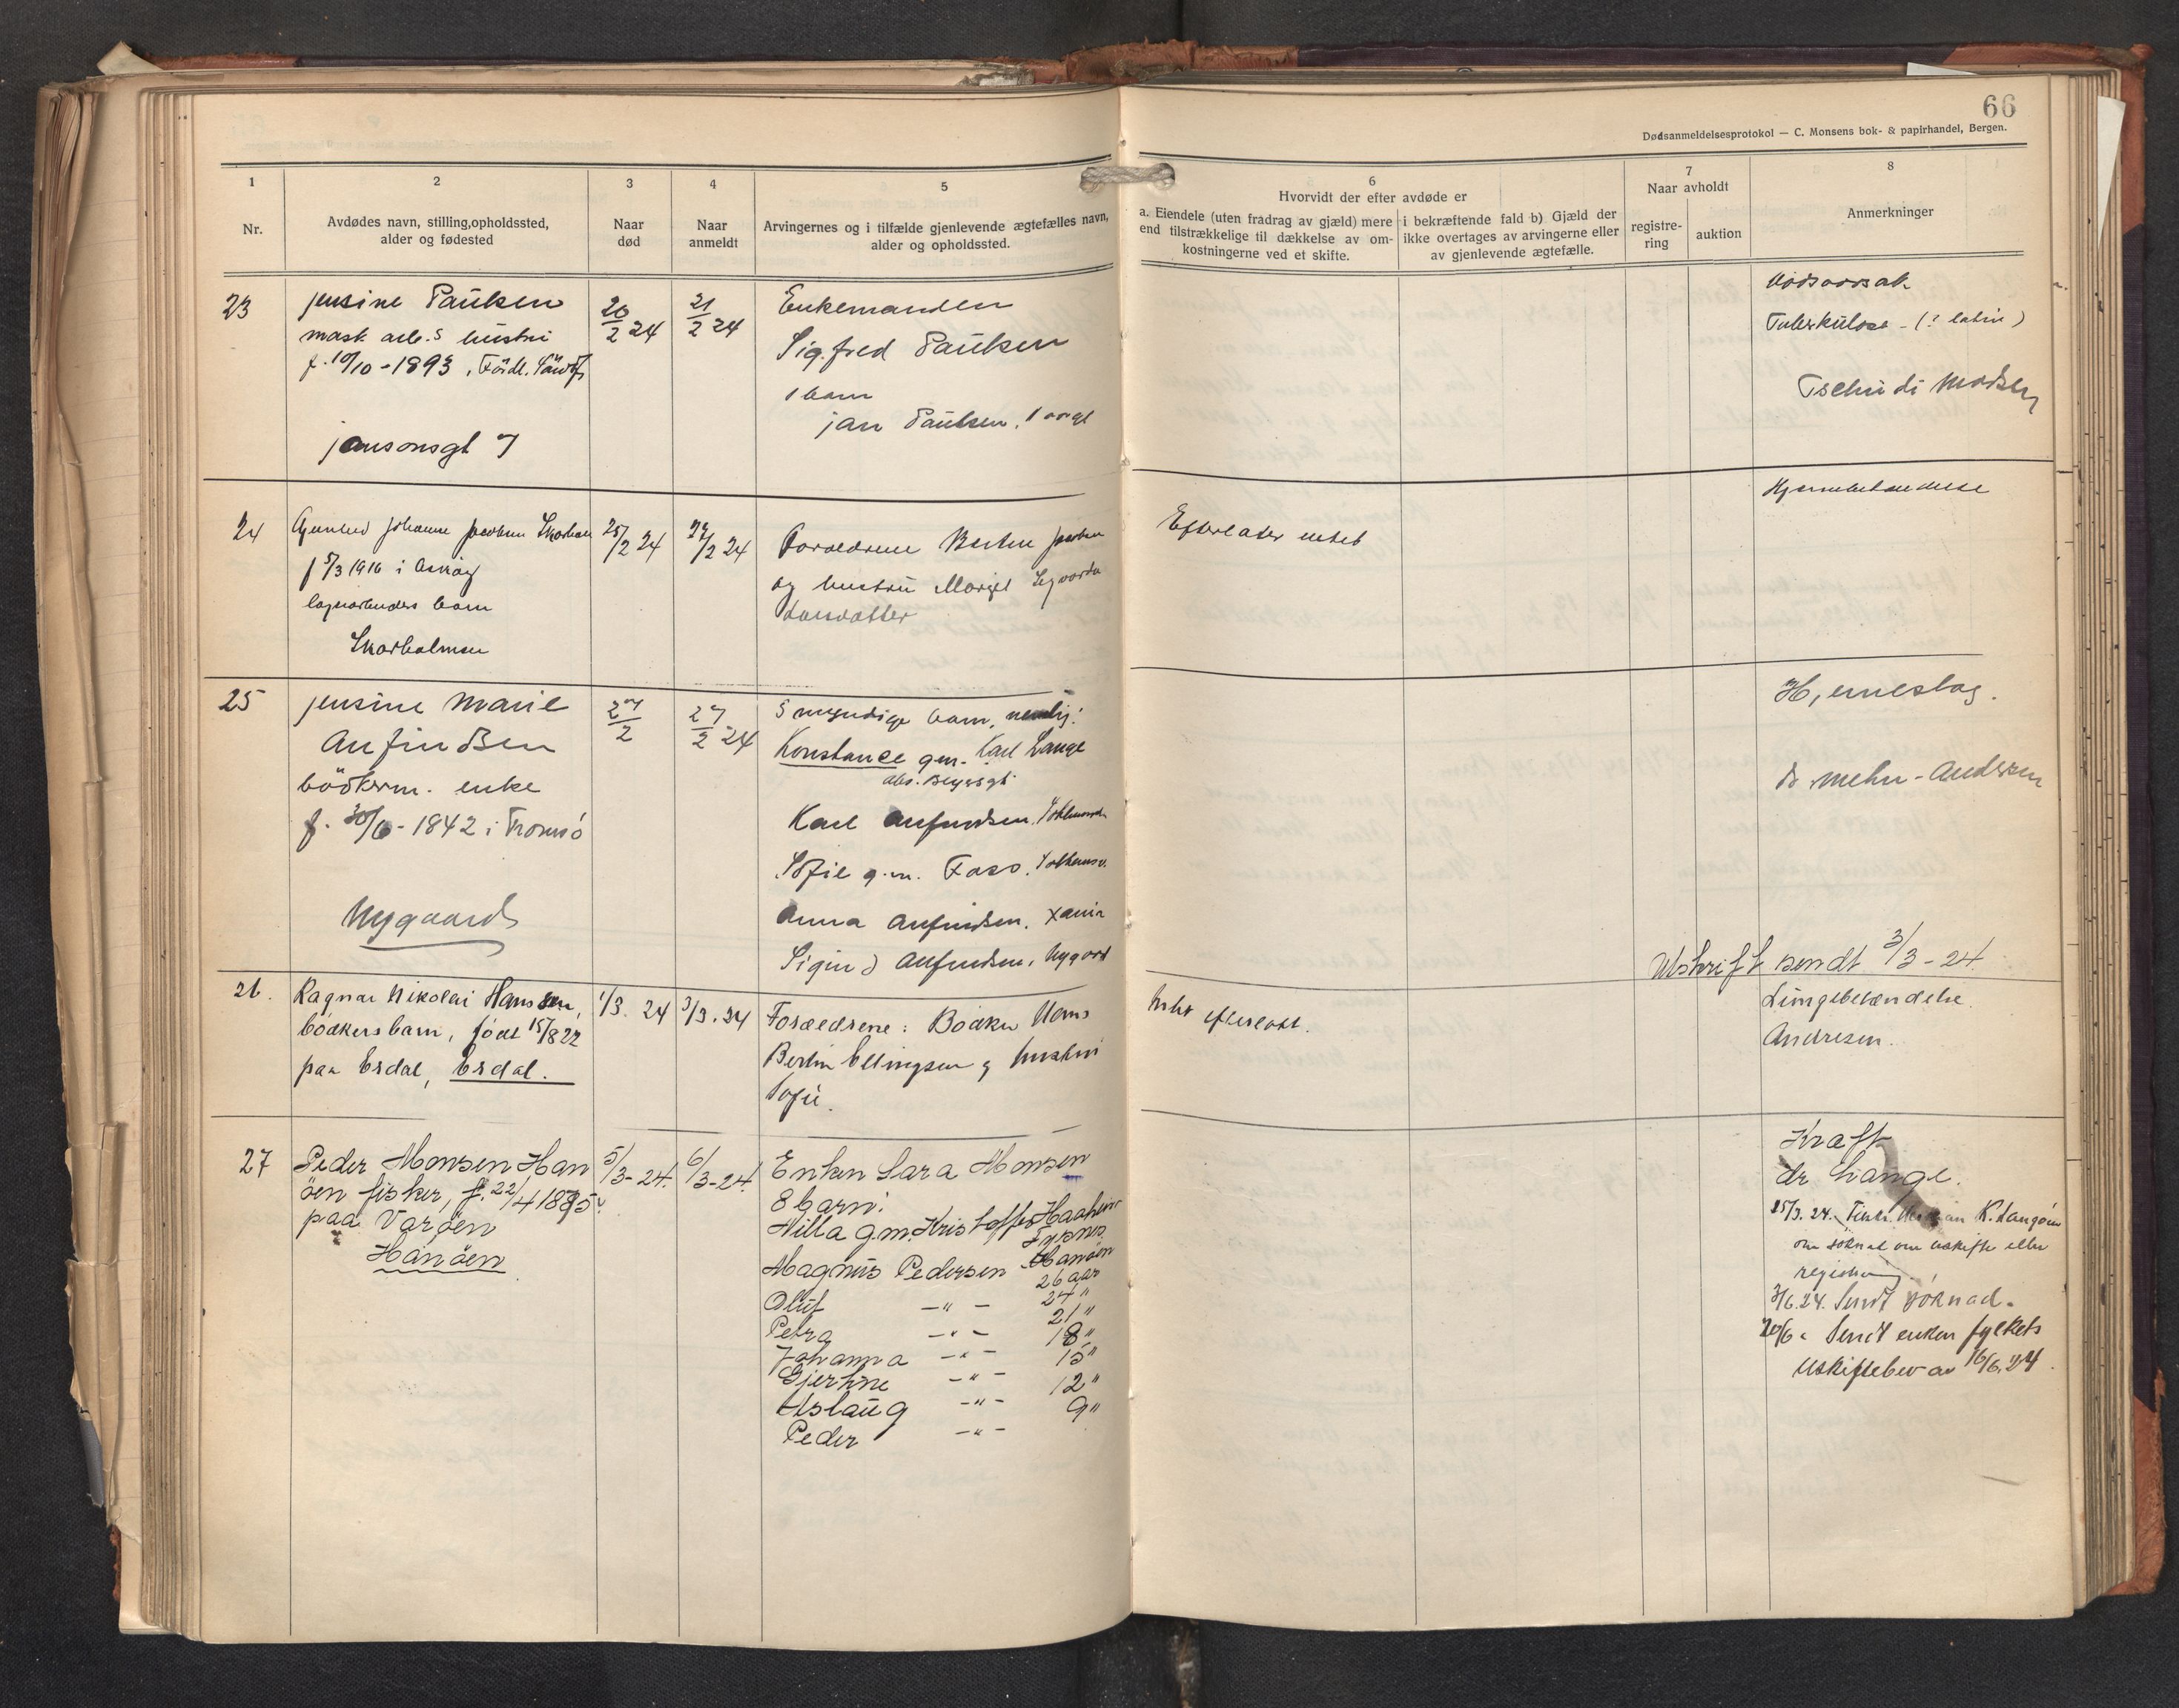 66
Dødsanmeldelsesprotokol — C. Monsens bok- & papirhandel, Bergen.
1
Nr.
2
Avdødes navn, stilling, opholdssted,
alder og fødested
3
Naar
død
4
Naar
anmeldt
5
Arvingernes og i tilfælde gjenlevende ægtefælles navn,
alder og opholdssted.
6
Hvorvidt der efter avdøde er
a. Eiendele (uten fradrag av gjæld) mere
end tilstrækkelige til dækkelse av om-
kostningerne ved et skifte.
i bekræftende fald b) Gjæld der
ikke overtages av arvingerne eller
av gjenlevende ægtefælle.
7
Naar avholdt
registre-
ring
auktion
8
Anmerkninger
23
Jensine Paulsen
mask arb.s hustru
f. 10/10 - 1893,
Jansonsgt 7
20/2 24
21/2 24
Enkemanden
Sigfred Paulsen
1 barn
Jan Paulsen, 1 aar gl
Dødsaarsak
Tuberkulose - (? latin)
Tschudi Madsen
24
Johanne Jacobsen
f 5/3 1916 i Askøy
barn
Skarholmen
25/2 24
27/2 24
Forældrene
og hustru
Larsdatter
Efterlater intet
25
Jensine Marie
Anfindsen
bödkerm. enke
f. 30/6 - 1842 i Tromsö
Nygaard
27/2
27/2 24
5 myndige barn, nemlig:
Konstance gm. Karl Lange
Karl Anfindsen,
Sofie g.m.
Anna Anfindsen. Xania
Sigurd Anfindsen, Nygard
Hjerneslag.
dr Mehn-Andersen
Utskrift sendt 3/3 - 24
26.
Ragnar Nikolai Hanssen,
bödkers barn, födt 15/8 22
paa Erdal, Erdal.
1/3. 24
3/3. 24
Forældrene: Bödker Hans
Bertin Ellingsen og hustru
Sofie.
Intet efterladt.
Lungebetændelse
Andresen.
27
Peder Monsen Han
öen fisker, f. 22/4
paa Varøen
Hanöen
5/3-24.
6/3-24.
Enken Sara Monsen
8 barn:
Milla g.m. Kristoffer
Magnus Pedersen Hanöen
26 aar
Oluf -"- 24 "
Petra -"- 21 "
Johanna -"- 18 "
Gjertine -"- 15 "
Aslaug -"- 12 "
Peder -"- 9 "
Kræft
dr Lange.
25/3. 24.
om söknad om uskifte eller
registrering.
3/6.24. Sendt söknad.
20/6 Sendt enken fylkets
uskiftebev av 16/6.24.